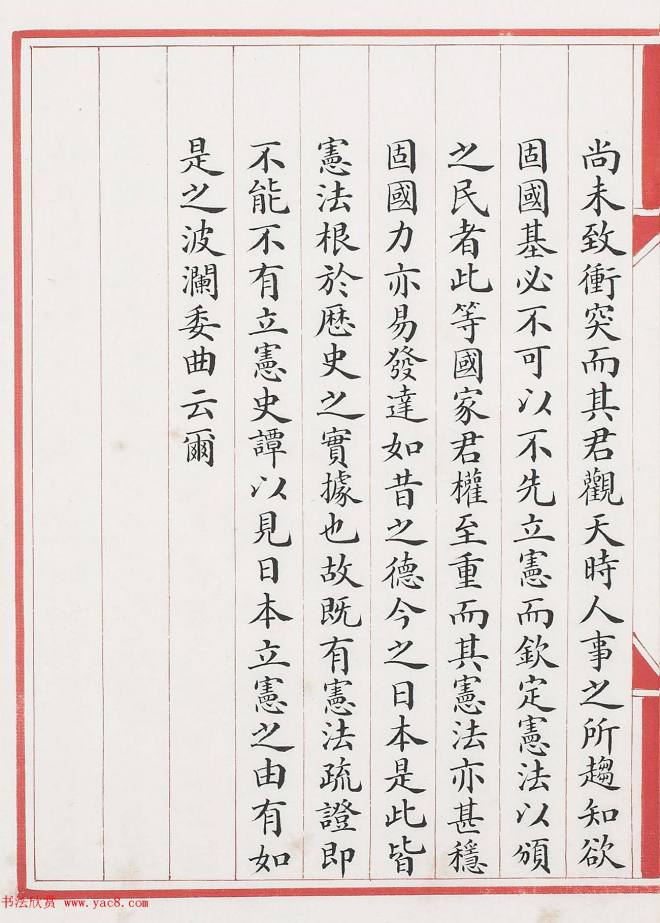 尚未致衝突而其君觀天時人事之所趨知欲
固國基必不可以不先立憲而欽定憲法以頒
之民者此等國家君權至重而其憲法亦甚穩
固國力亦易發達如昔之德今之日本是此皆
憲法根於歷史之實據也故既有憲法疏證即
不能不有立憲史譚以見日本立憲之由有如
是之波瀾委曲云爾
书法欣赏 www.yac8.com